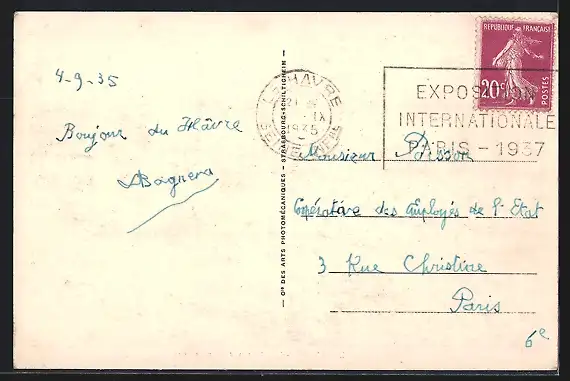 4-9-35
Bonjour du Hâvre
Cie DES ARTS PHOTOMÉCANIQUES - STRASBOURG-SCHILTIGHEIM
LE HAVRE
IX
1935
RÉPUBLIQUE FRANÇAISE
20c
POSTES
EXPOSITION
INTERNATIONALE
PARIS - 1937
Monsieur Poisson
Coopérative des Employés de l'Etat
3 Rue Christine
Paris
6e